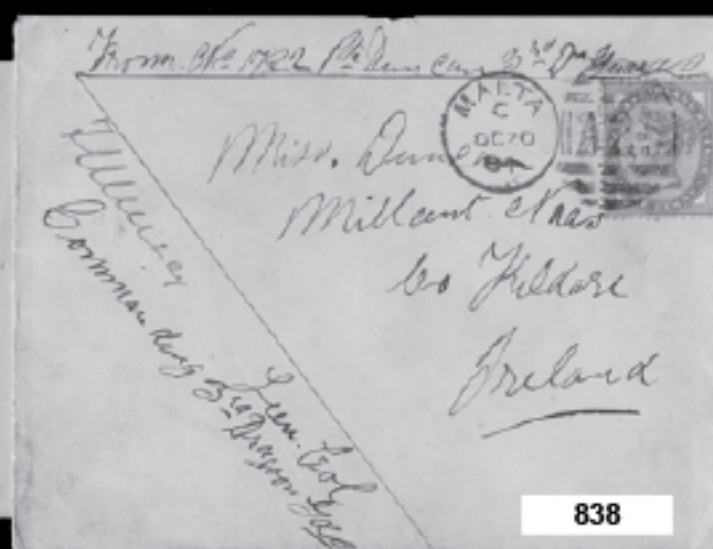 From No 1722 Pte Duncan 3rd Dn Guards
MALTA
C
OC 20
Miss. Duncan
Millicent Naas
Co Kildare
Ireland
Lieu. Col
Commanding 3rd Dragoon Gds
838